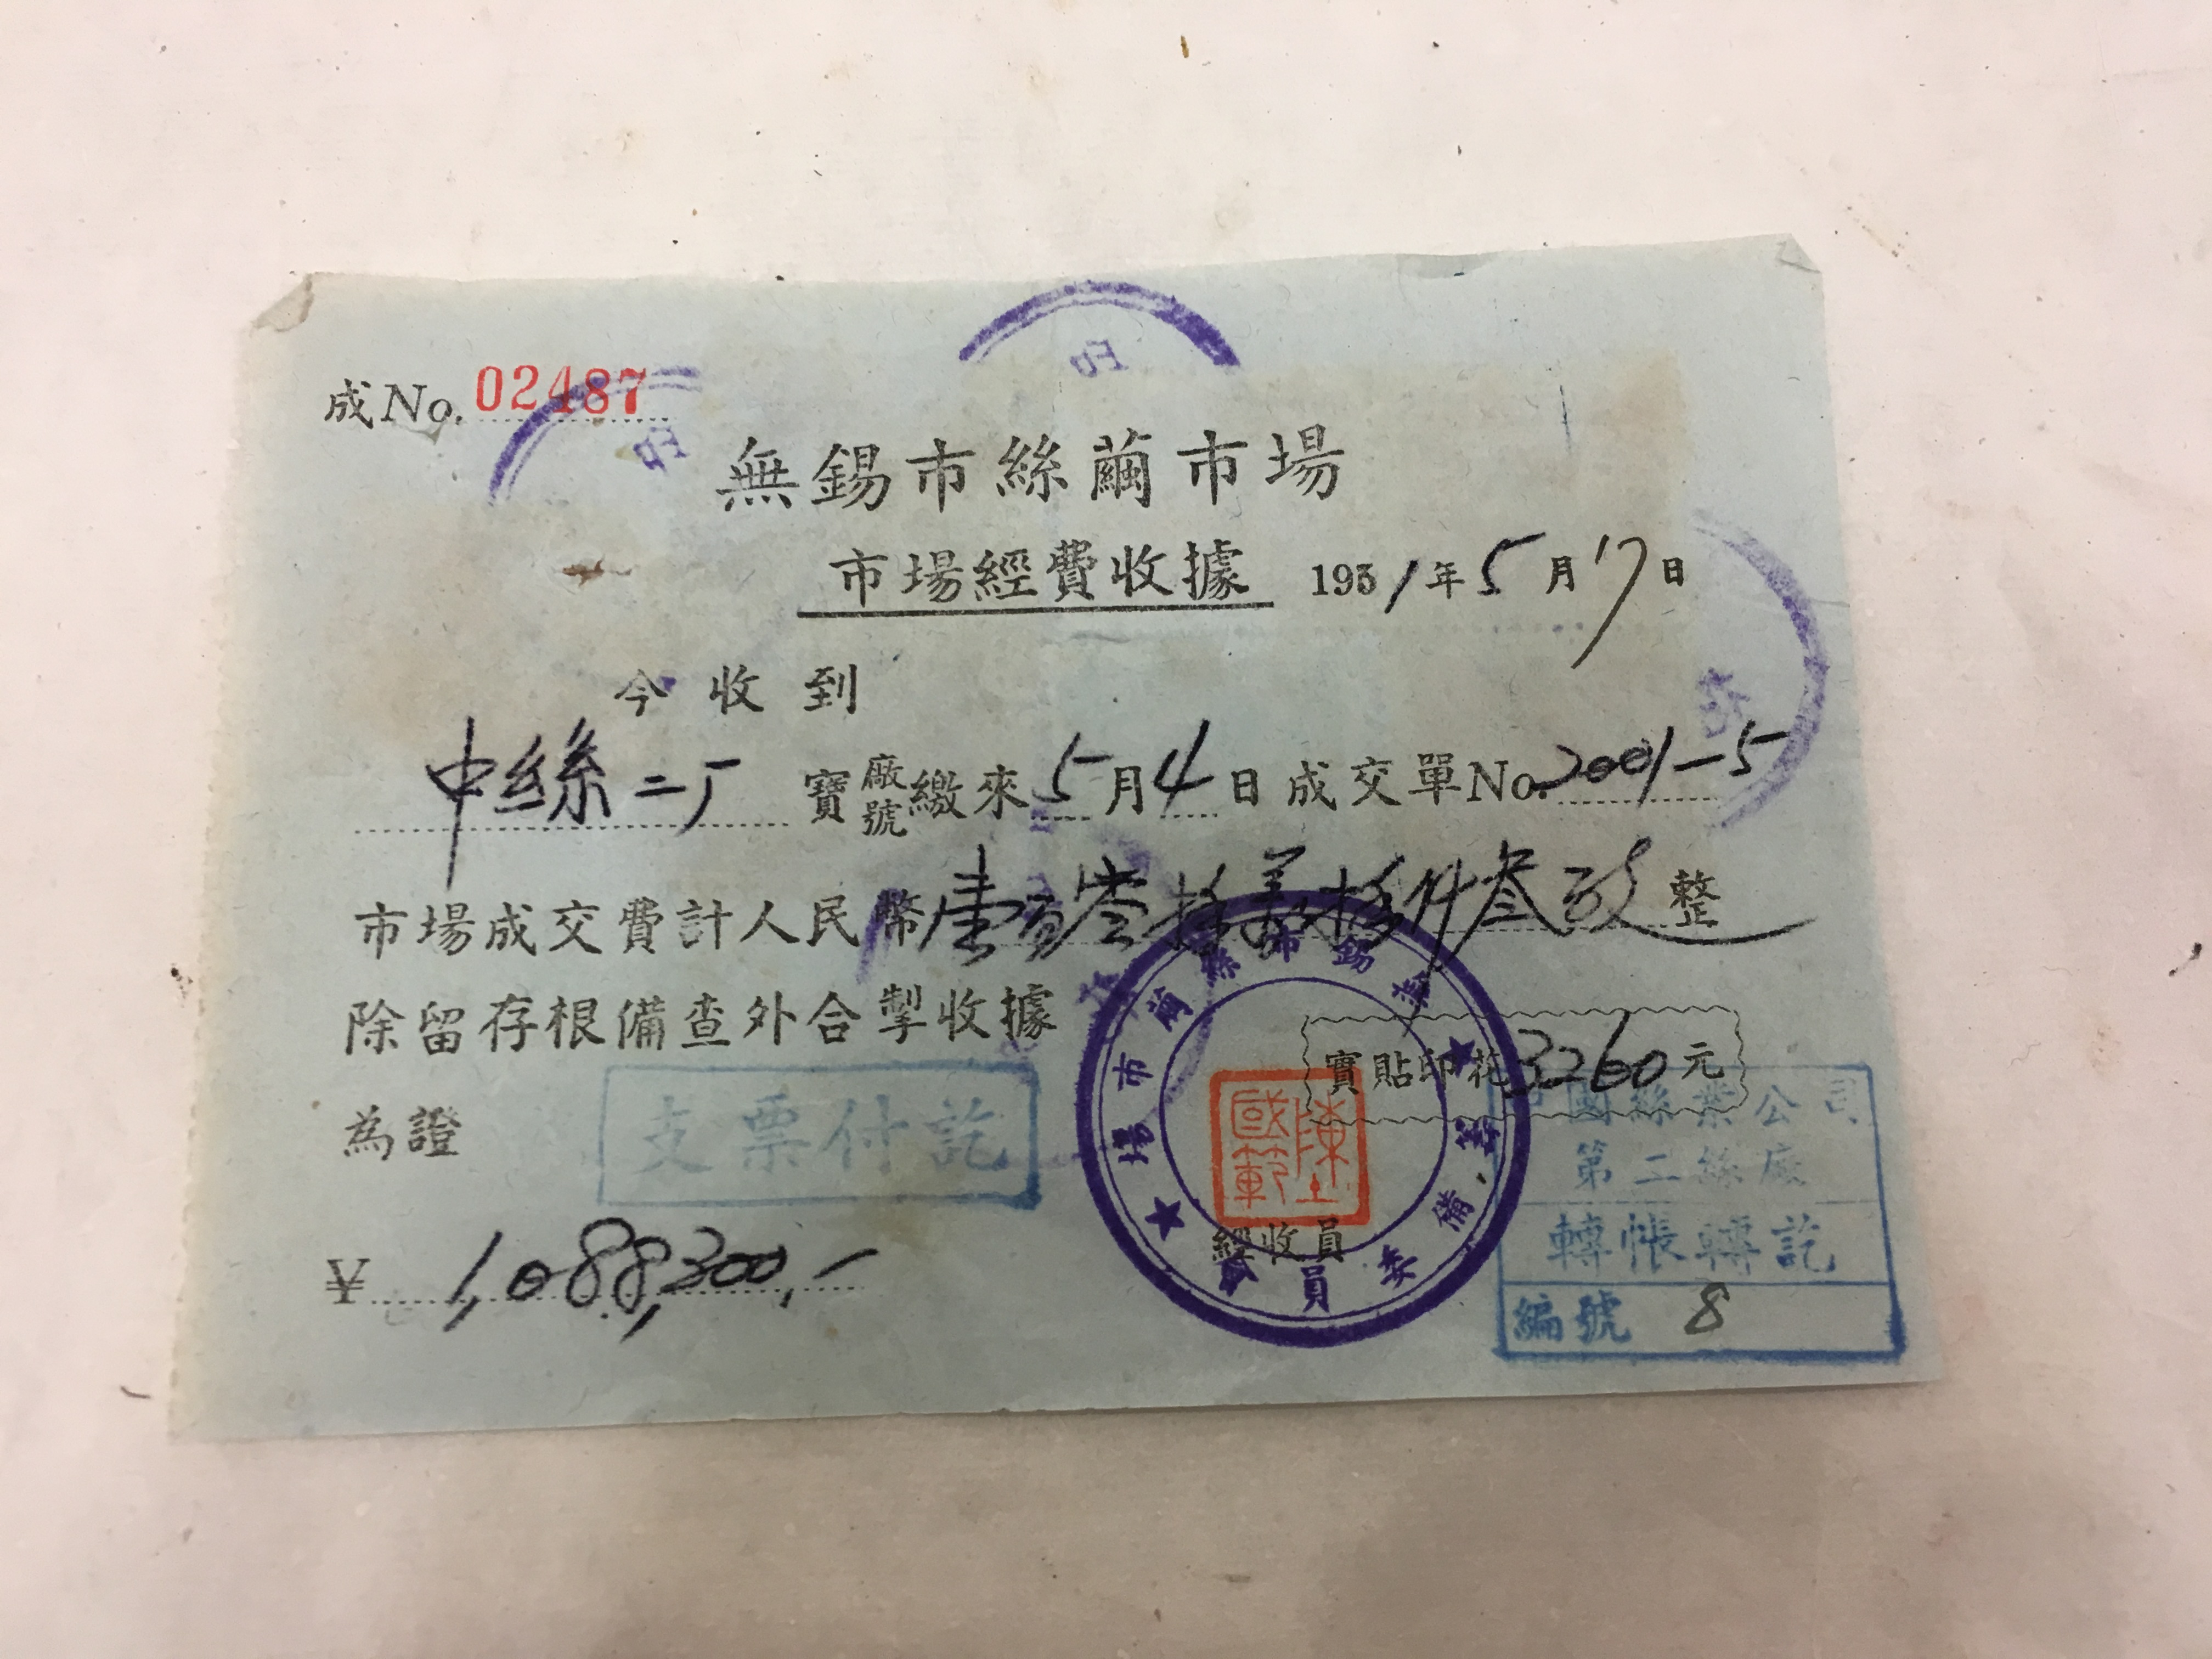 成No. 02487
無錫市絲繭市場
市場經費收據 1951年5月17日
今收到
中絲二厂 寶廠號繳來5月4日成交單No.2001-5
市場成交費計人民幣壹百零捌萬捌仟叁百整
除留存根備查外合掣收據
實貼印花3260元
為證
支票付訖
無錫市絲繭市場籌備委員會
陳國範
經收員
¥ 1,088,300.-
中國絲業公司
第二絲廠
轉帳轉訖
編號 8